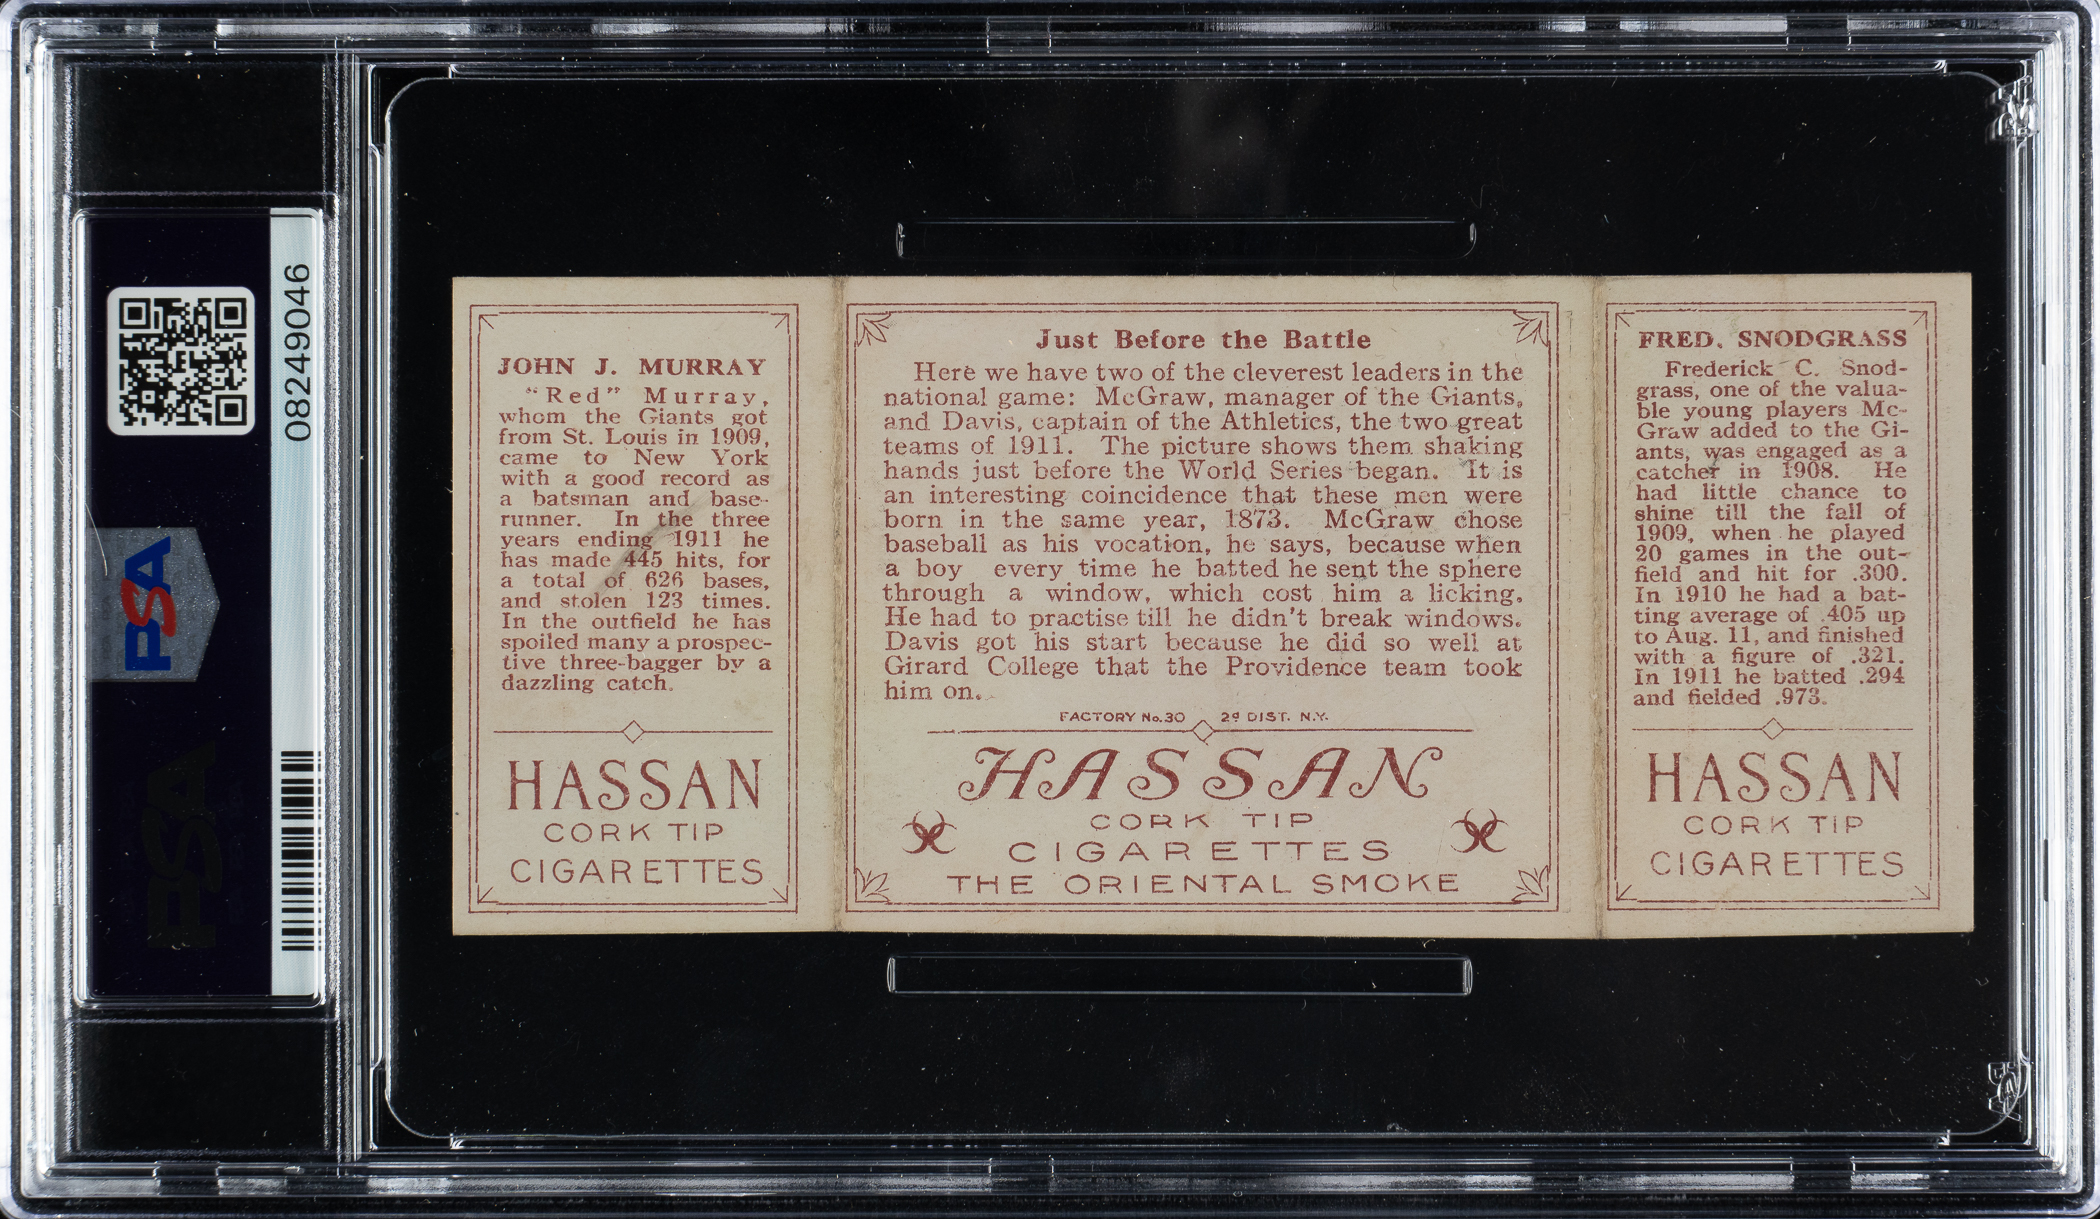 08249046
PSA
PSA
JOHN J. MURRAY
"Red" Murray,
whom the Giants got
from St. Louis in 1909,
came to New York
with a good record as
a batsman and base-
runner. In the three
years ending 1911 he
has made 445 hits, for
a total of 626 bases,
and stolen 123 times.
In the outfield he has
spoiled many a prospec-
tive three-bagger by a
dazzling catch.
HASSAN
CORK TIP
CIGARETTES
Just Before the Battle
Here we have two of the cleverest leaders in the
national game: McGraw, manager of the Giants,
and Davis, captain of the Athletics, the two great
teams of 1911. The picture shows them shaking
hands just before the World Series began. It is
an interesting coincidence that these men were
born in the same year, 1873. McGraw chose
baseball as his vocation, he says, because when
a boy every time he batted he sent the sphere
through a window, which cost him a licking.
He had to practise till he didn't break windows.
Davis got his start because he did so well at
Girard College that the Providence team took
him on.
FACTORY No. 30 2d DIST. N.Y.
HASSAN
CORK TIP
CIGARETTES
THE ORIENTAL SMOKE
FRED. SNODGRASS
Frederick C. Snod-
grass, one of the valua-
ble young players Mc-
Graw added to the Gi-
ants, was engaged as a
catcher in 1908. He
had little chance to
shine till the fall of
1909, when he played
20 games in the out-
field and hit for .300.
In 1910 he had a bat-
ting average of .405 up
to Aug. 11, and finished
with a figure of .321.
In 1911 he batted .294
and fielded .973.
HASSAN
CORK TIP
CIGARETTES